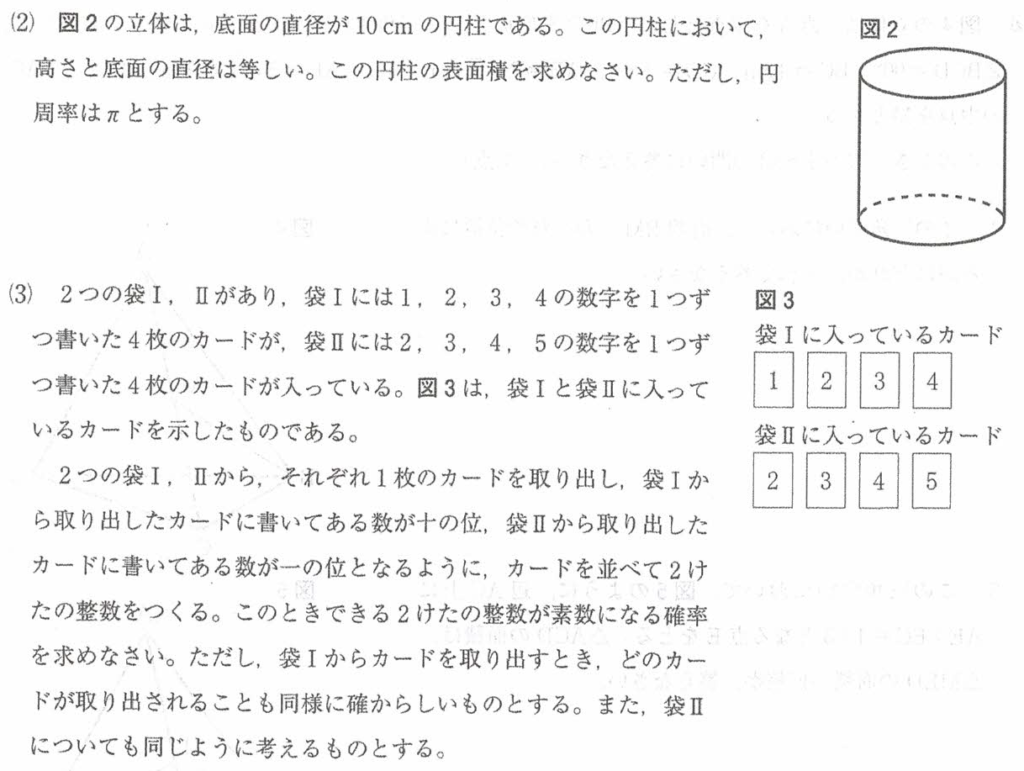 (2) 図2の立体は，底面の直径が10 cmの円柱である。この円柱において，
高さと底面の直径は等しい。この円柱の表面積を求めなさい。ただし，円
周率はπとする。
図2
(3) 2つの袋Ⅰ，Ⅱがあり，袋Ⅰには1，2，3，4の数字を1つず
つ書いた4枚のカードが，袋Ⅱには2，3，4，5の数字を1つず
つ書いた4枚のカードが入っている。図3は，袋Ⅰと袋Ⅱに入って
いるカードを示したものである。
2つの袋Ⅰ，Ⅱから，それぞれ1枚のカードを取り出し，袋Ⅰか
ら取り出したカードに書いてある数が十の位，袋Ⅱから取り出した
カードに書いてある数が一の位となるように，カードを並べて2け
たの整数をつくる。このときできる2けたの整数が素数になる確率
を求めなさい。ただし，袋Ⅰからカードを取り出すとき，どのカー
ドが取り出されることも同様に確からしいものとする。また，袋Ⅱ
についても同じように考えるものとする。
図3
袋Ⅰに入っているカード
1 2 3 4
袋Ⅱに入っているカード
2 3 4 5